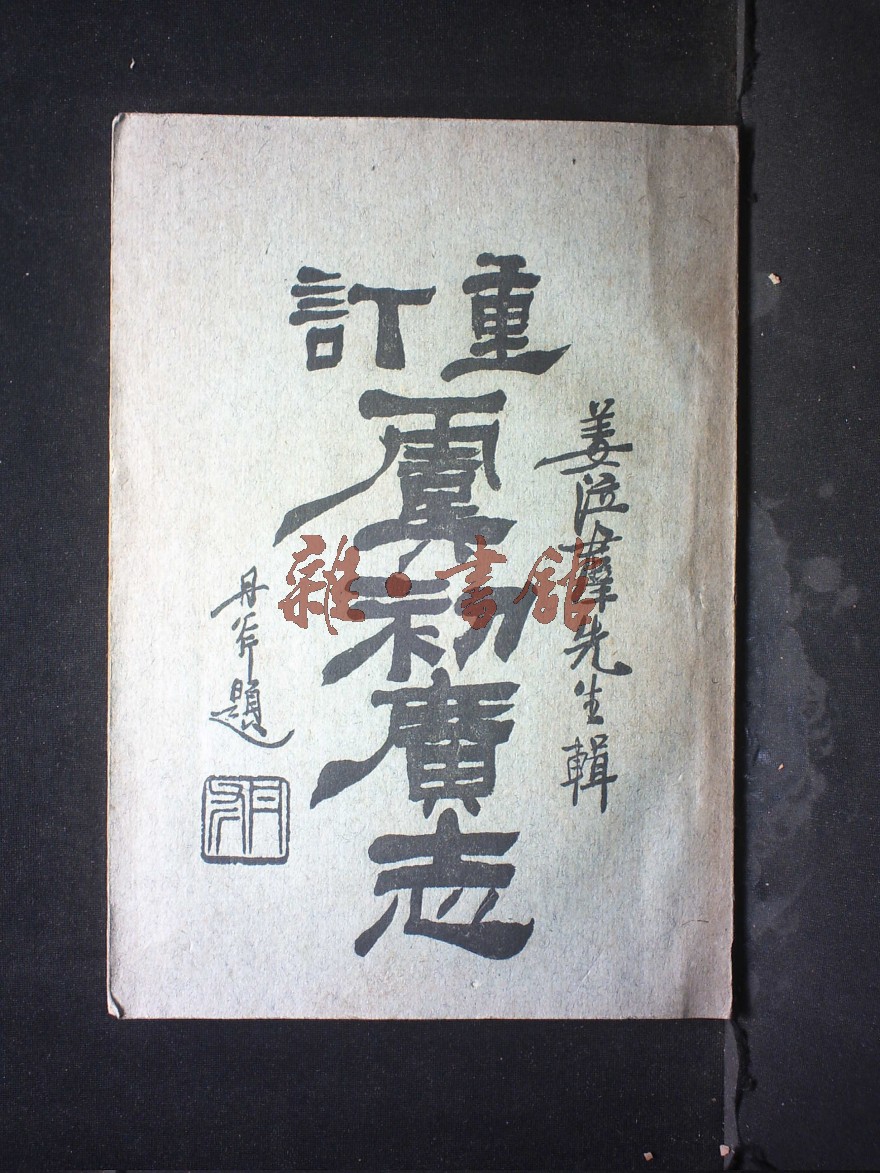 重訂
虞初廣志
姜泣羣先生輯
丹斧題
雜·書館